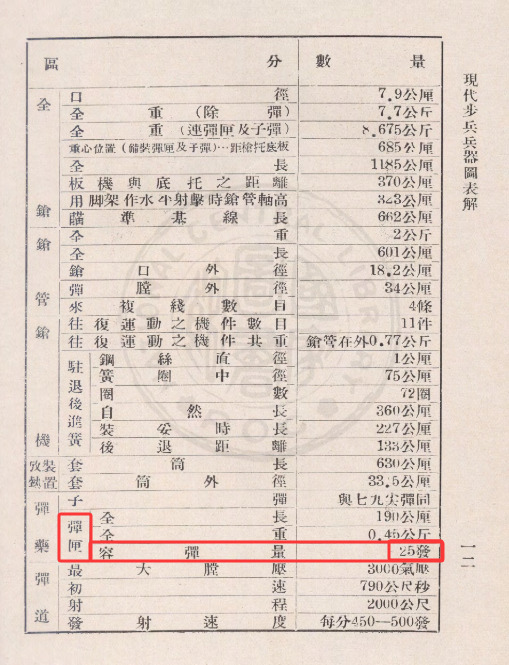 現代步兵兵器圖表解
一一一
區 分 數 量
全鎗
口徑 7.9公厘
全重(除彈) 7.7公斤
全重(連彈匣及子彈) 8.675公斤
重心位置(備裝彈匣及子彈)…距槍托底板 685公厘
全長 1185公厘
板機與底托之距離 370公厘
用脚架作水平射擊時鎗管軸高 323公厘
瞄準基線長 662公厘
鎗管
全重 2公斤
全長 601公厘
鎗口外徑 18.2公厘
彈膛外徑 34公厘
來複綫數目 4條
鎗機
往復運動之機件數目 11件
往復運動之機件共重 鎗管在外0.77公斤
駐退後進簧
鋼絲直徑 1公厘
簧圈中徑 75公厘
圈數 72圈
自然長 360公厘
裝妥時長 227公厘
後退距離 133公厘
散熱裝置
套筒長 630公厘
套筒外徑 33.5公厘
彈藥
子彈 與七九尖彈同
彈匣
全長 190公厘
全重 0.45公斤
容彈量 25發
彈道
最大膛壓 3000氣壓
初速 790公尺秒
射程 2000公尺
發射速度 每分450—500發